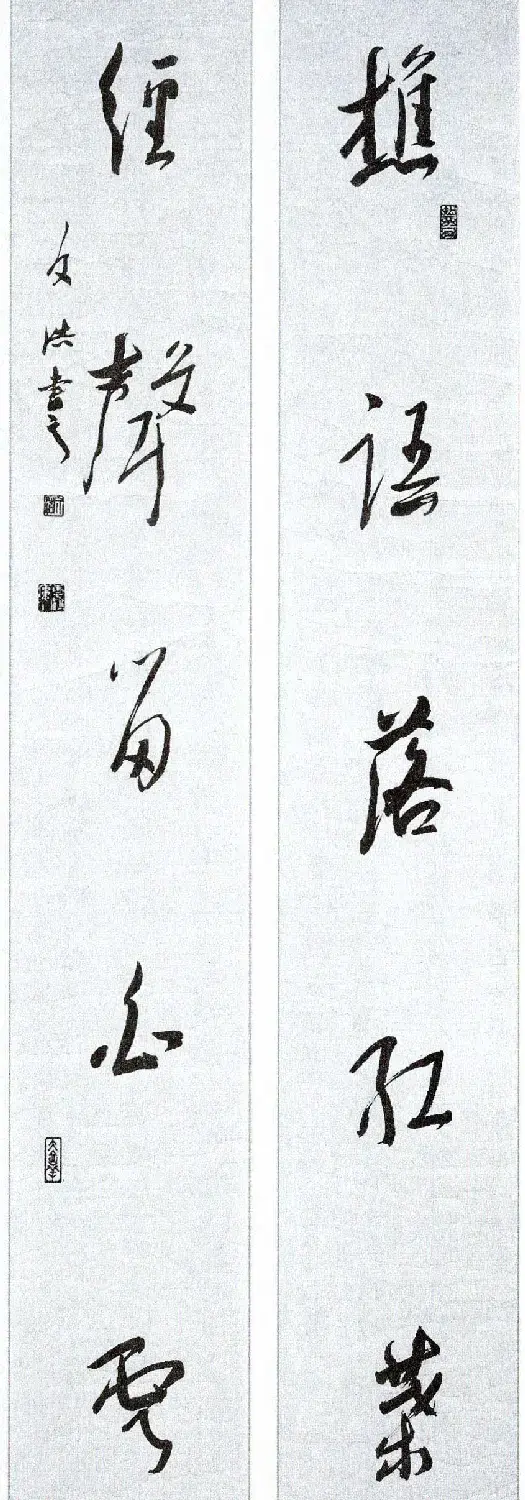 樵語落紅葉
經聲留白雲
文洪書之